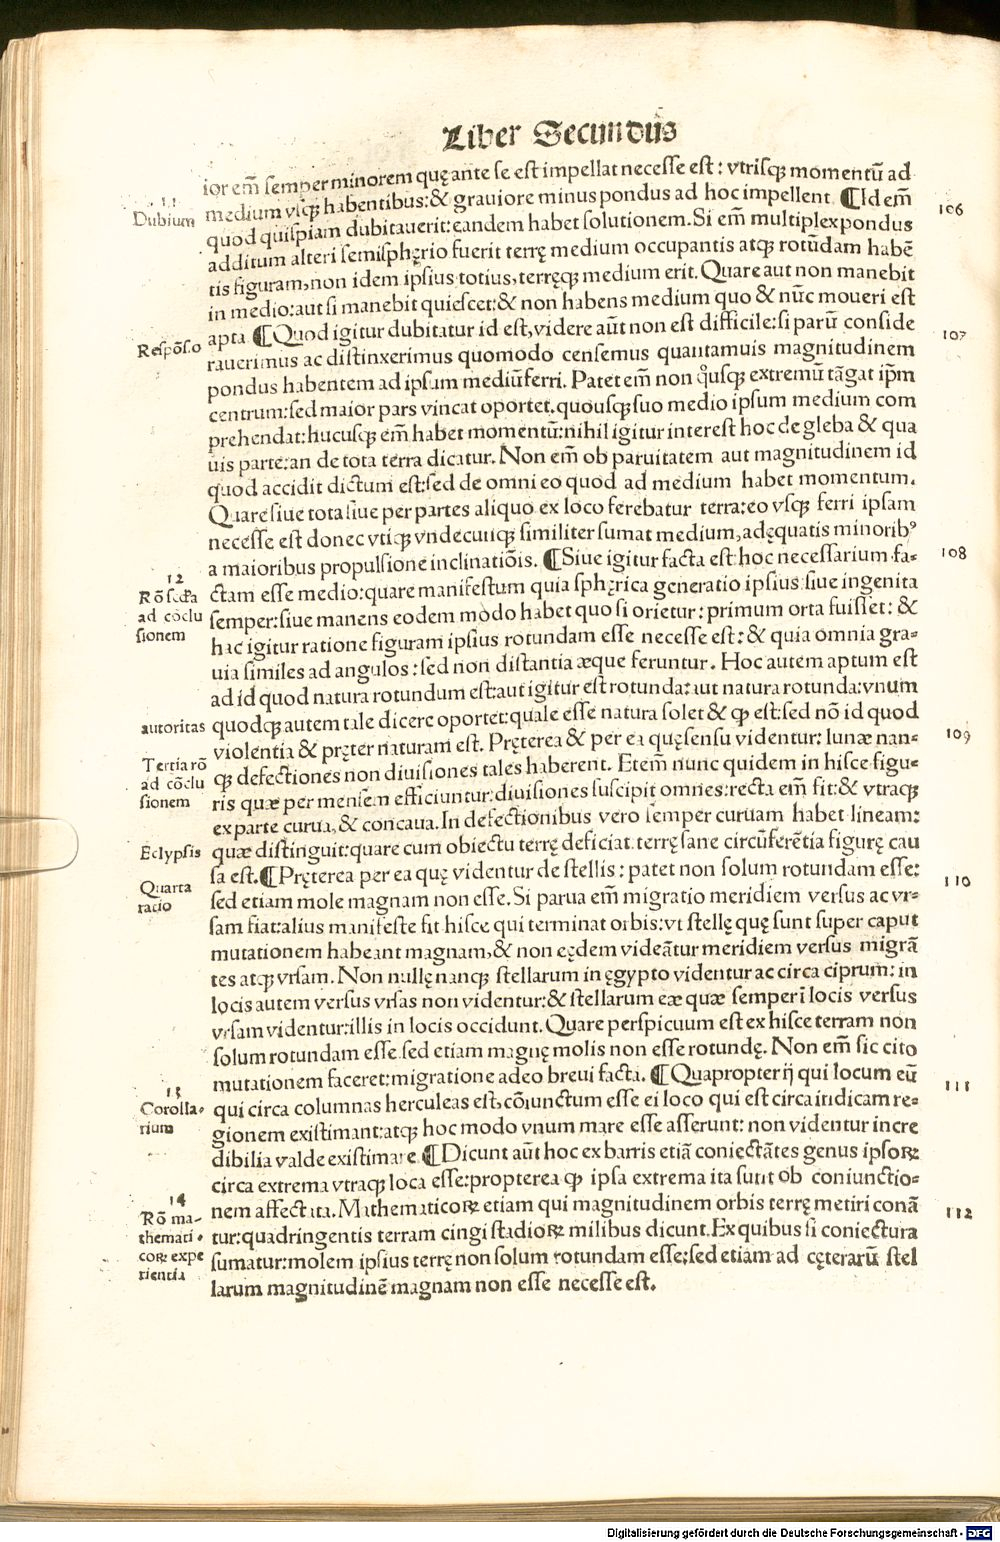 Liber Secundus
ior em̄ semper minorem quę ante se est impellat necesse est: vtrisqꝫ momentū ad
medium vsqꝫ habentibus:& grauiore minus pondus ad hoc impellent ¶Id em̄
106
11
Dubium
quod quispiam dubitauerit:eandem habet solutionem.Si em̄ multiplex pondus
additum alteri semisphęrio fuerit terrę medium occupantis atqꝫ rotūdam habē
tis figuram,non idem ipsius totius,terręqꝫ medium erit.Quare aut non manebit
in medio:aut si manebit quiescet:& non habens medium quo & nūc moueri est
apta ¶Quod igitur dubitatur id est,videre aūt non est difficile:si parū conside
107
Respōs.o
rauerimus ac distinxerimus quomodo censemus quantamuis magnitudinem
pondus habentem ad ipsum mediū ferri. Patet em̄ non qͦusqꝫ extremū tāgat ip̄m
centrum:sed maior pars vincat oportet.quousqꝫ suo medio ipsum medium com
prehendat:hucusqꝫ em̄ habet momentū:nihil igitur interest hoc de gleba & qua
uis parte:an de tota terra dicatur. Non em̄ ob paruitatem aut magnitudinem id
quod accidit dictum est:sed de omni eo quod ad medium habet momentum.
Quare siue tota siue per partes aliquo ex loco ferebatur terra:eo vsqꝫ ferri ipsam
necesse est donec vtiqꝫ vndecunqꝫ similiter sumat medium,adęquatis minoribꝰ
a maioribus propulsione inclinatiōis. ¶Siue igitur facta est hoc necessarium fa-
108
12
Rō scd̄a
ad coclu
sionem
ctam esse medio:quare manifestum quia sphęrica generatio ipsius siue ingenita
semper:siue manens eodem modo habet quo si orietur: primum orta fuisset: &
hac igitur ratione figuram ipsius rotundam esse necesse est: & quia omnia gra-
uia similes ad angulos :sed non distantia æque feruntur. Hoc autem aptum est
ad id quod natura rotundum est:aut igitur est rotunda: aut natura rotunda:vnum
autoritas
quodqꝫ autem tale dicere oportet:quale esse natura solet & ꝙ est:sed nō id quod
violentia & pręter naturam est. Pręterea & per ea quę sensu videntur: lunæ nan-
109
Tertia rō
ad cōclu
sionem
qꝫ defectiones non diuisiones tales haberent. Etem̄ nunc quidem in hisce figu-
ris quæ per mensem efficiuntur:diuisiones suscipit omnes:recta em̄ fit:& vtraqꝫ
ex parte curua,& concaua.In defectionibus vero semper curuam habet lineam:
Eclypsis
quæ distinguit:quare cum obiectu terrę deficiat. terrę sane circūferētia figurę cau
sa est.¶Pręterea per ea quę videntur de stellis: patet non solum rotundam esse:
110
Quarta
ratio
sed etiam mole magnam non esse. Si parua em̄ migratio meridiem versus ac vr-
sam fiat:alius manifeste fit hisce qui terminat orbis:vt stellę quę sunt super caput
mutationem habeant magnam,& non eędem videātur meridiem versus migrā
tes atqꝫ vrsam. Non nullę nanqꝫ stellarum in ęgypto videntur ac circa ciprum: in
locis autem versus vrsas non videntur:& stellarum eæ quæ semper ī locis versus
vrsam videntur:illis in locis occidunt.Quare perspicuum est ex hisce terram non
solum rotundam esse.sed etiam magnę molis non esse rotundę. Non em̄ sic cito
mutationem faceret:migratione adeo breui facta. ¶Quapropter ij qui locum eū
111
13
Corolla-
rium
qui circa columnas herculeas est,cōiunctum esse ei loco qui est circa indicam re-
gionem existimant:atqꝫ hoc modo vnum mare esse asserunt: non videntur incre
dibilia valde existimare ¶Dicunt aūt hoc ex barris etiā coniectātes genus ipsoꝝ
circa extrema vtraqꝫ loca esse:propterea ꝙ ipsa extrema ita sunt ob coniunctio-
14
Rō ma-
themati-
coꝝ expe
rientia
nem affectata. Mathematicoꝝ etiam qui magnitudinem orbis terrę metiri conā
112
tur:quadringentis terram cingi stadioꝝ milibus dicunt.Ex quibus si coniectura
sumatur:molem ipsius terrę non solum rotundam esse:sed etiam ad cęterarū stel
larum magnitudinē magnam non esse necesse est.
Digitalisierung gefördert durch die Deutsche Forschungsgemeinschaft - DFG